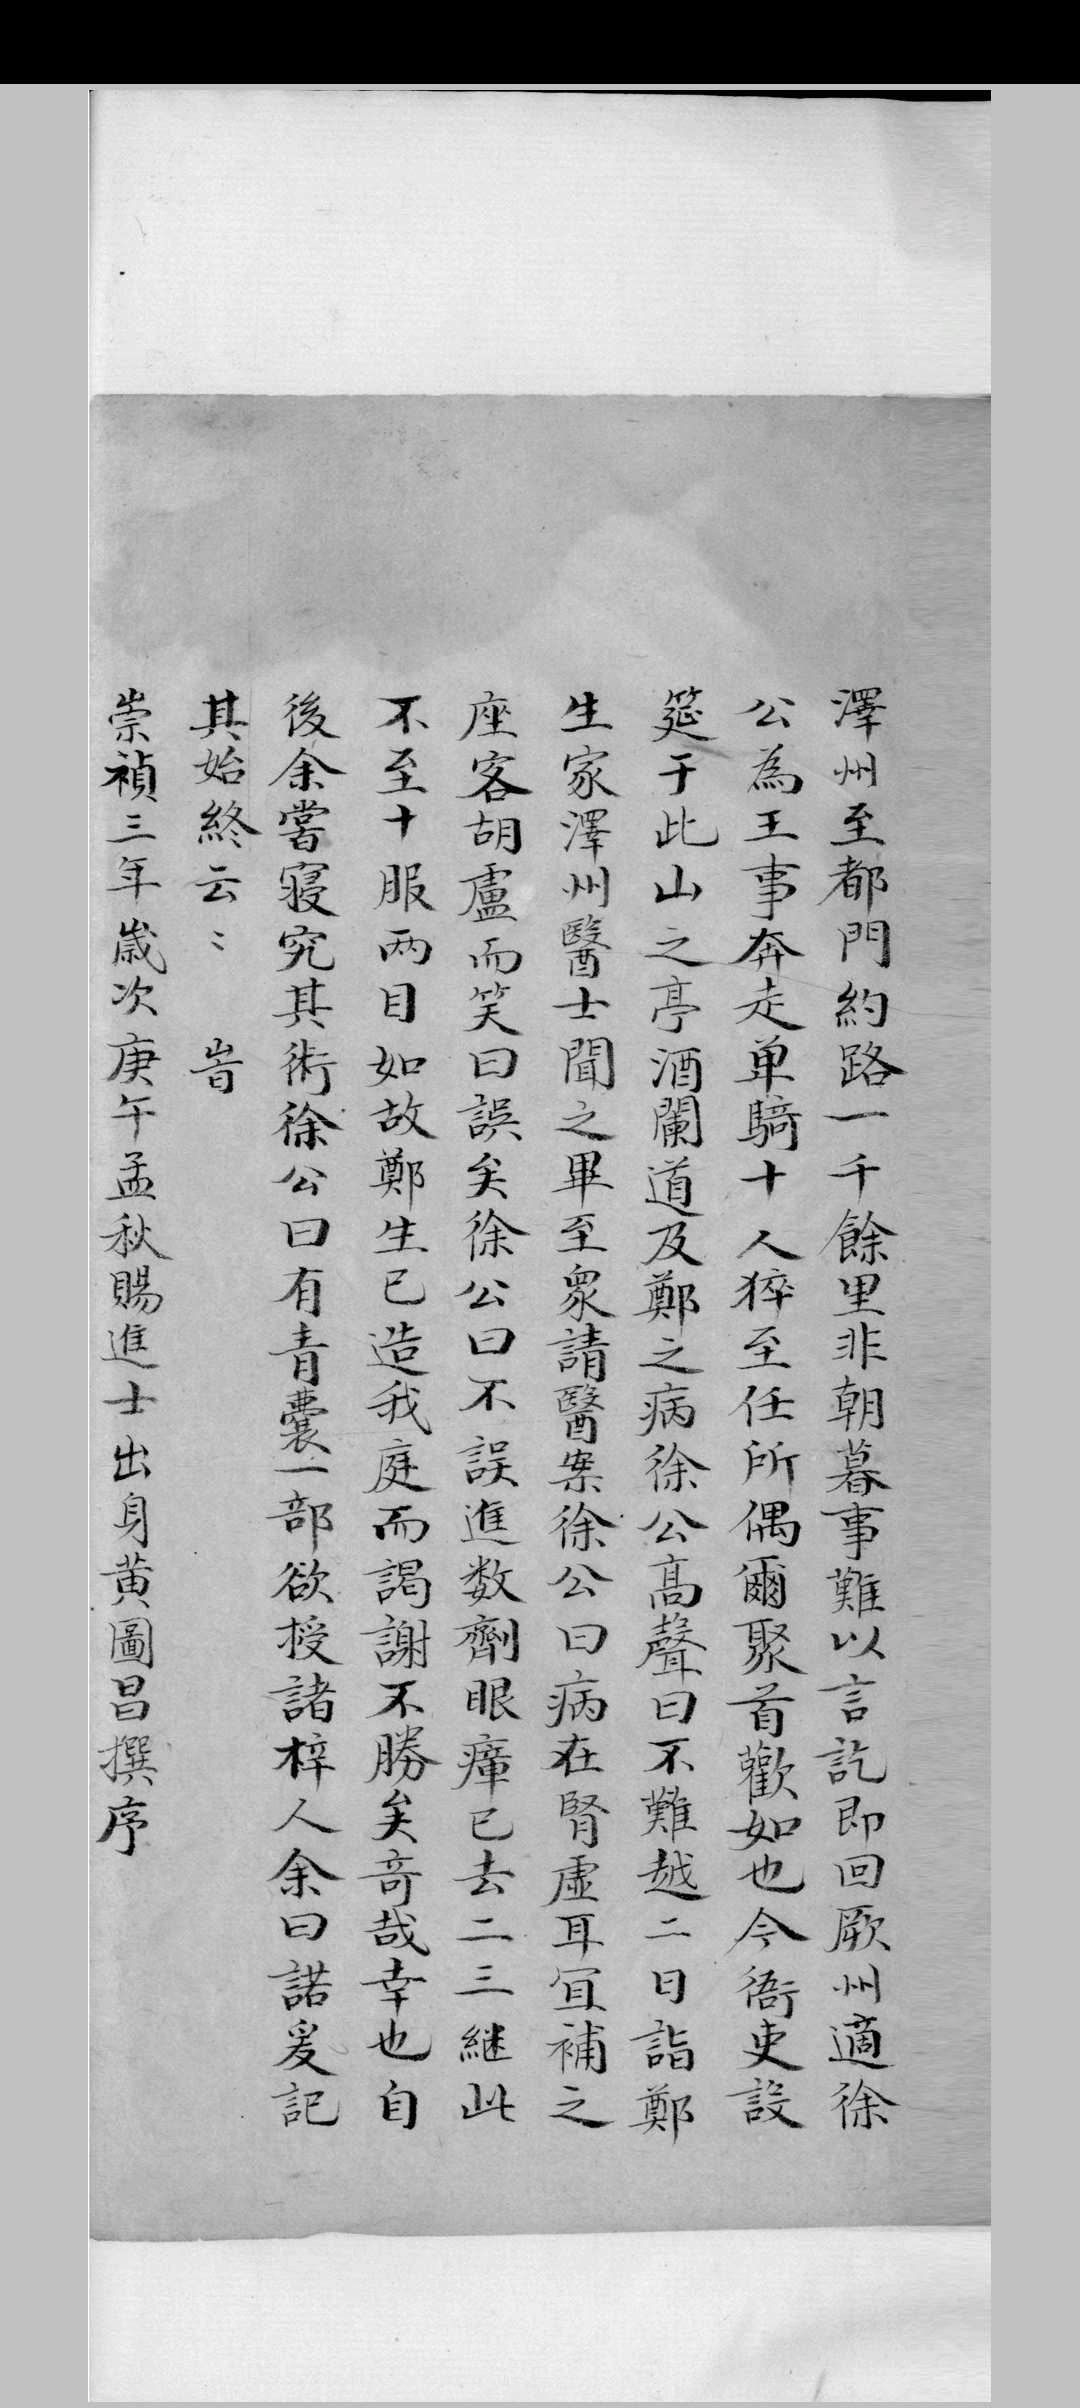 澤州至都門約路一千餘里非朝暮事難以言訖即回厥州適徐
公為王事奔走单騎十人猝至任所偶爾聚首歡如也今衙吏設
筵于此山之亭酒闌道及鄭之病徐公髙聲曰不難越二日詣鄭
生家澤州醫士聞之畢至衆請醫案徐公曰病在腎虛耳宜補之
座客胡盧而笑曰誤矣徐公曰不誤進数劑眼瘴已去二三継此
不至十服両目如故鄭生已造我庭而謁謝不勝矣竒哉幸也自
後余嘗寢究其術徐公曰有青囊一部欲授諸梓人余曰諾爰記
其始終云〻 旹
崇禎三年歲次庚午孟秋賜進士出身黄圖昌撰序